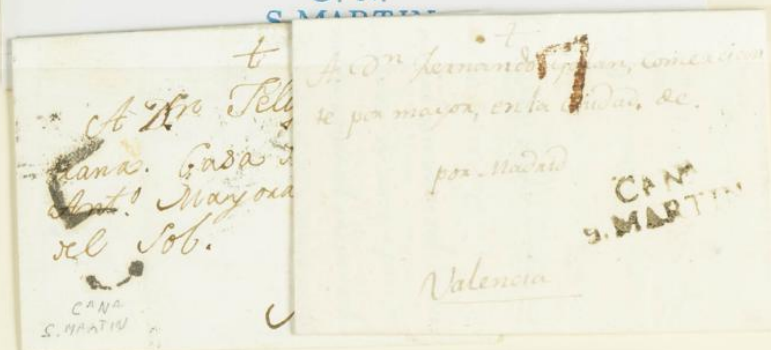 S. MARTIN
+
A Dn
tiana. Casa
Anto. Mayora
del Sol.
CANA
S. MARTIN
+
A Dn Fernando comercian
te por mayor, en la Ciudad, de.
por Madrid
Valencia
7
CANA
S. MARTIN